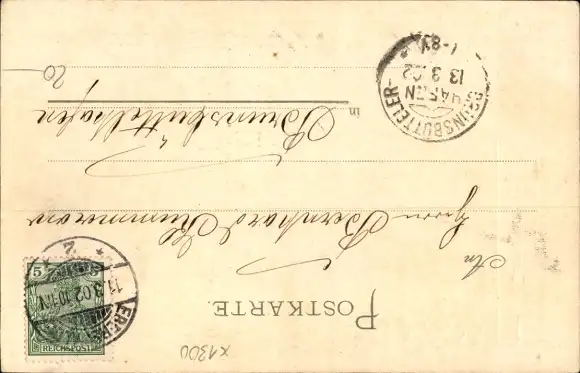 POSTKARTE.
An
Herrn Bernhard
in
Brunsbüttelhafen
20
BRUNSBÜTTELER-
HAFEN
13 3 02
7-8V
11.3.02.10-11V
5 5
REICHSPOST
x1300